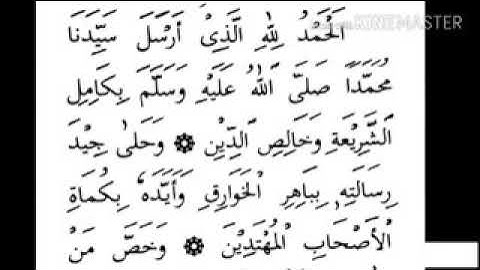 KINEMASTER
اَلْحَمْدُ لِلّٰهِ الَّذِىْ اَرْسَلَ سَيِّدَنَا
مُحَمَّدًا صَلَّى اللّٰهُ عَلَيْهِ وَسَلَّمَ بِكَامِلِ
الشَّرِيْعَةِ وَخَالِصِ الدِّيْنِ ۞ وَحَلَىٰ جِيْدَ
رِسَالَتِهٖ بِبَاهِرِ الْخَوَارِقِ وَاَيَّدَهٗ بِكُمَاةِ
الْاَصْحَابِ الْمُهْتَدِيْنَ ۞ وَخَصَّ مَنْ